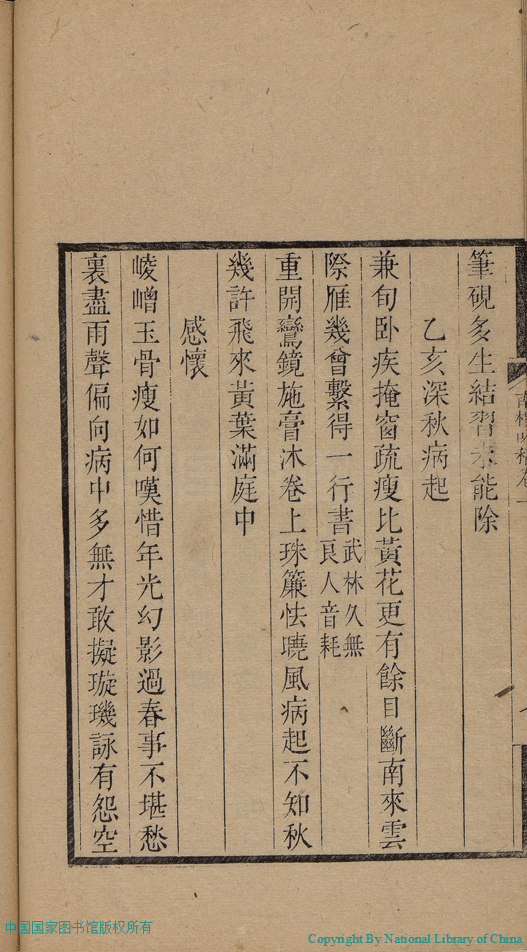 筆硯多生結習未能除
乙亥深秋病起
兼旬卧疾掩窗疏瘦比黃花更有餘目斷南來雲
際雁幾曾繫得一行書武林久無良人音耗
重開鸞鏡施膏沐卷上珠簾怯曉風病起不知秋
幾許飛來黃葉滿庭中
感懷
崚嶒玉骨瘦如何嘆惜年光幻影過春事不堪愁
裏盡雨聲偏向病中多無才敢擬璇璣詠有怨空
中国国家图书馆版权所有
Copyright By National Library of China